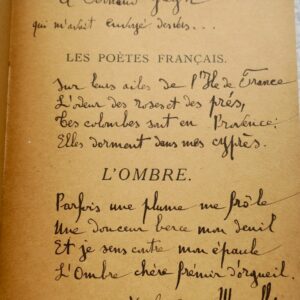 A
qui m'avait envoyé
LES POÈTES FRANÇAIS.
Sur leurs ailes de l'Ile de France
L'odeur des roses et des prés,
Tes colombes sont en Provence:
Elles dorment dans mes cyprès.
L'OMBRE.
Parfois une plume me frôle
Une douceur berce mon deuil
Et je sens contre mon épaule
L'Ombre chère frémir d'orgueil.